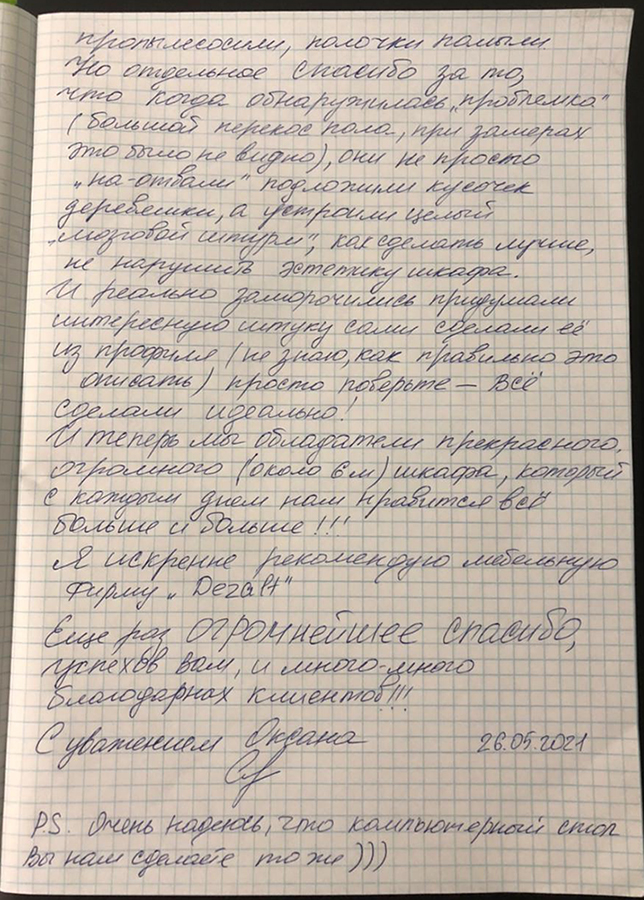 пропылесосили, полочки помыли
Но отдельное спасибо за то,
что когда обнаружилась „проблемка"
(большой перекос пола, при замерах
это было не видно), они не просто
„на-отвали" подложили кусочек
деревяшки, а устроили целый
„мозговой штурм", как сделать лучше,
не нарушить эстетику шкафа.
И реально заморочились придумали
интересную штуку сами сделали её
из профиля (не знаю, как правильно это
описать) просто поверьте – всё
сделали идеально!
И теперь мы обладатели прекрасного,
огромного (около 6 м) шкафа, который
с каждым днем нам нравится всё
больше и больше!!!
Я искренне рекомендую мебельную
фирму „
Еще раз огромнейшее спасибо,
успехов вам, и много-много
благодарных клиентов!!!
С уважением Оксана
26.05.2021
P.S. Очень надеюсь, что компьютерный стол
Вы нам сделаете тоже)))